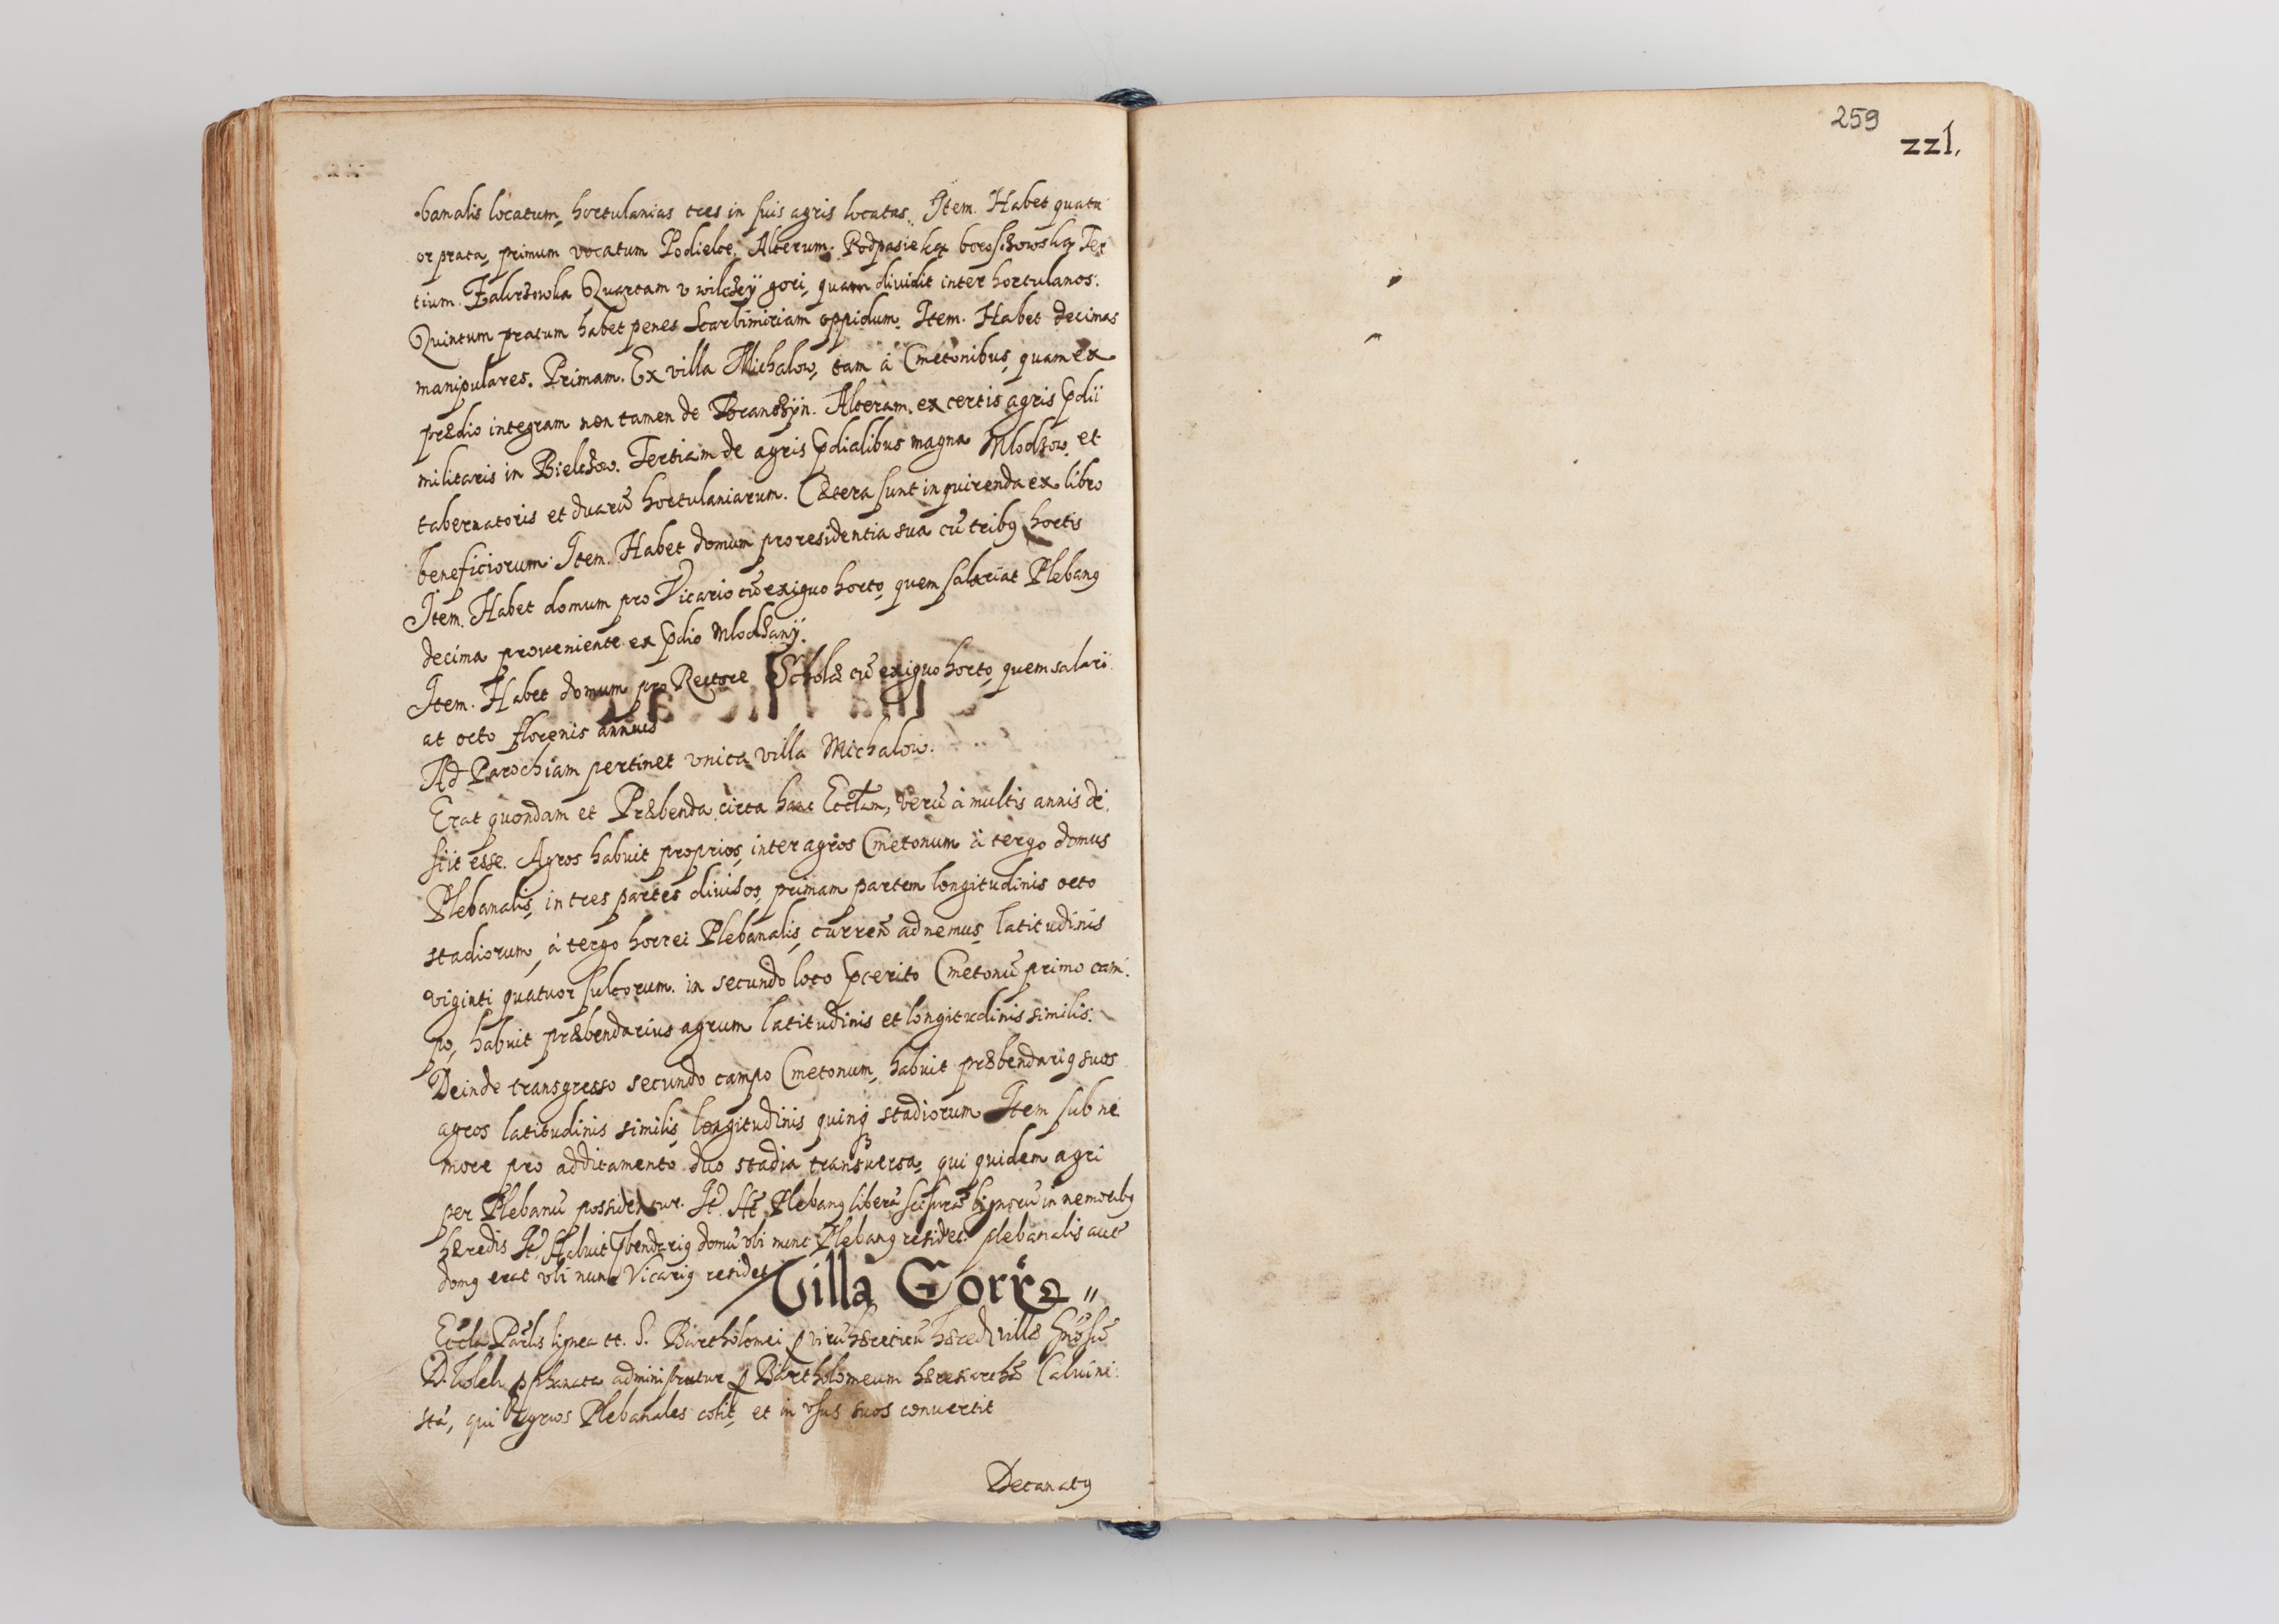 banalis locatum, hortulanias tres in suis agris locatas. Item. Habet quatu
or prata, primum vocatum Podielce, Alterum. Podpasieką Ter
tium. Quartam v wilczÿ gori, quam diuidit inter hortulanos.
Quintum pratum habet penes Scarbimiriam oppidum. Item. Habet decimas
manipulares. Primam. Ex villa Michalow, tam à Cmetonibus, quam ex
prædio integram non tamen de Alteram. ex certis agris pdii
militaris in Bielczow. Tertiam de agris pdialibus magna Mlodzow, et
tabernatoris et duarū hortulaniarum. Cætera sunt inquirenda ex libro
beneficiorum. Item. Habet domum pro residentia sua cū tribꝯ hortis
Item. Habet domum pro Vicario cū exiguo horto, quem salariat Plebanꝯ
decima proueniente ex pdio Mlodzanÿ.
Item. Habet domum pro Rectore Scholæ cū exiguo horto, quem salari
at octo florenis annuis
Ad Parochiam pertinet vnica villa Michalow.
Erat quondam et Præbenda circa hanc Eccłam, verū à multis annis de
siit esse. Agros habuit proprios, inter agros Cmetonum à tergo domus
Plebanalis, in tres partes diuisos, primam partem longitudinis octo
stadiorum, à tergo horrei Plebanalis, currēn ad nemus, latitudinis
viginti quatuor sulcorum. in secundo loco pterito Cmetonū primo cam
po, habuit præbendarius agrum latitudinis et longitudinis similis.
Deinde transgresso secundo campo Cmetonum, habuit præbendariꝯ suos
agros latitudinis similis, longitudinis quinq stadiorum Item sub ne
more pro additamento duo stadia transuersa, qui quidem agri
per Plebanū possidentur. It. Hēt Plebanꝯ liberā scisurā lignorū in nemoribꝯ
hæredis It. Habuit pbendariꝯ domū vbi nunc Plebanꝯ residet. plebanalis autē
domꝯ erat vbi nunc Vicariꝯ residet
Villa Gorræ
Eccła Parlis lignea tt. S. Bartholomei p virū hæreticū hæred villæ
D. pphanata administratur p Bartholomeum hæresiarchā Caluini
stā, qui Agros Plebanales colit, et in vsus suos conuertit
Decanatꝯ
259
zz1.